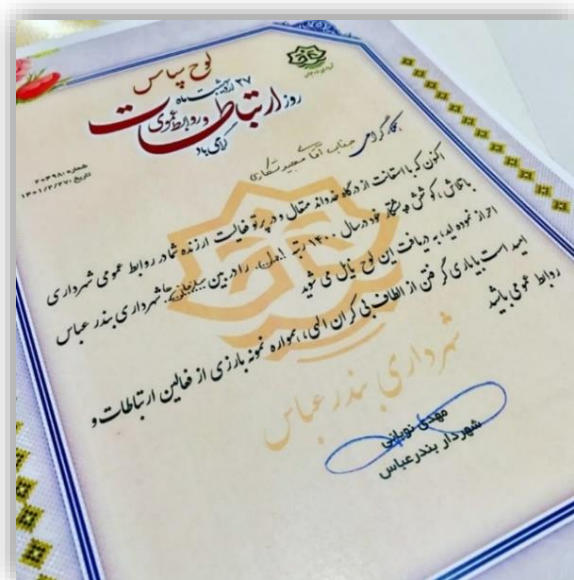 لوح سپاس
۲۷ اردیبهشت ماه
روز ارتباطات و روابط عمومی
گرامی باد
شماره: ۲۰۴۹۸
تاریخ: ۱۴۰۱/۲/۲۷
همکار گرامی جناب آقای مجید
اکنون که با استعانت از درگاه خداوند متعال و در پرتو فعالیت ارزنده شما در روابط عمومی شهرداری
با تلاش، کوشش و ابتکار خود در سال ۱۴۰۰ رتبه را در بین شهرداری بندر عباس
احراز نموده اید، به دریافت این لوح نایل می شوید
امید است با یاری گرفتن از الطاف بی کران الهی، همواره نمونه بارزی از فعالین ارتباطات و
روابط عمومی باشید
شهرداری بندر عباس
مهدی نوبانی
شهردار بندرعباس